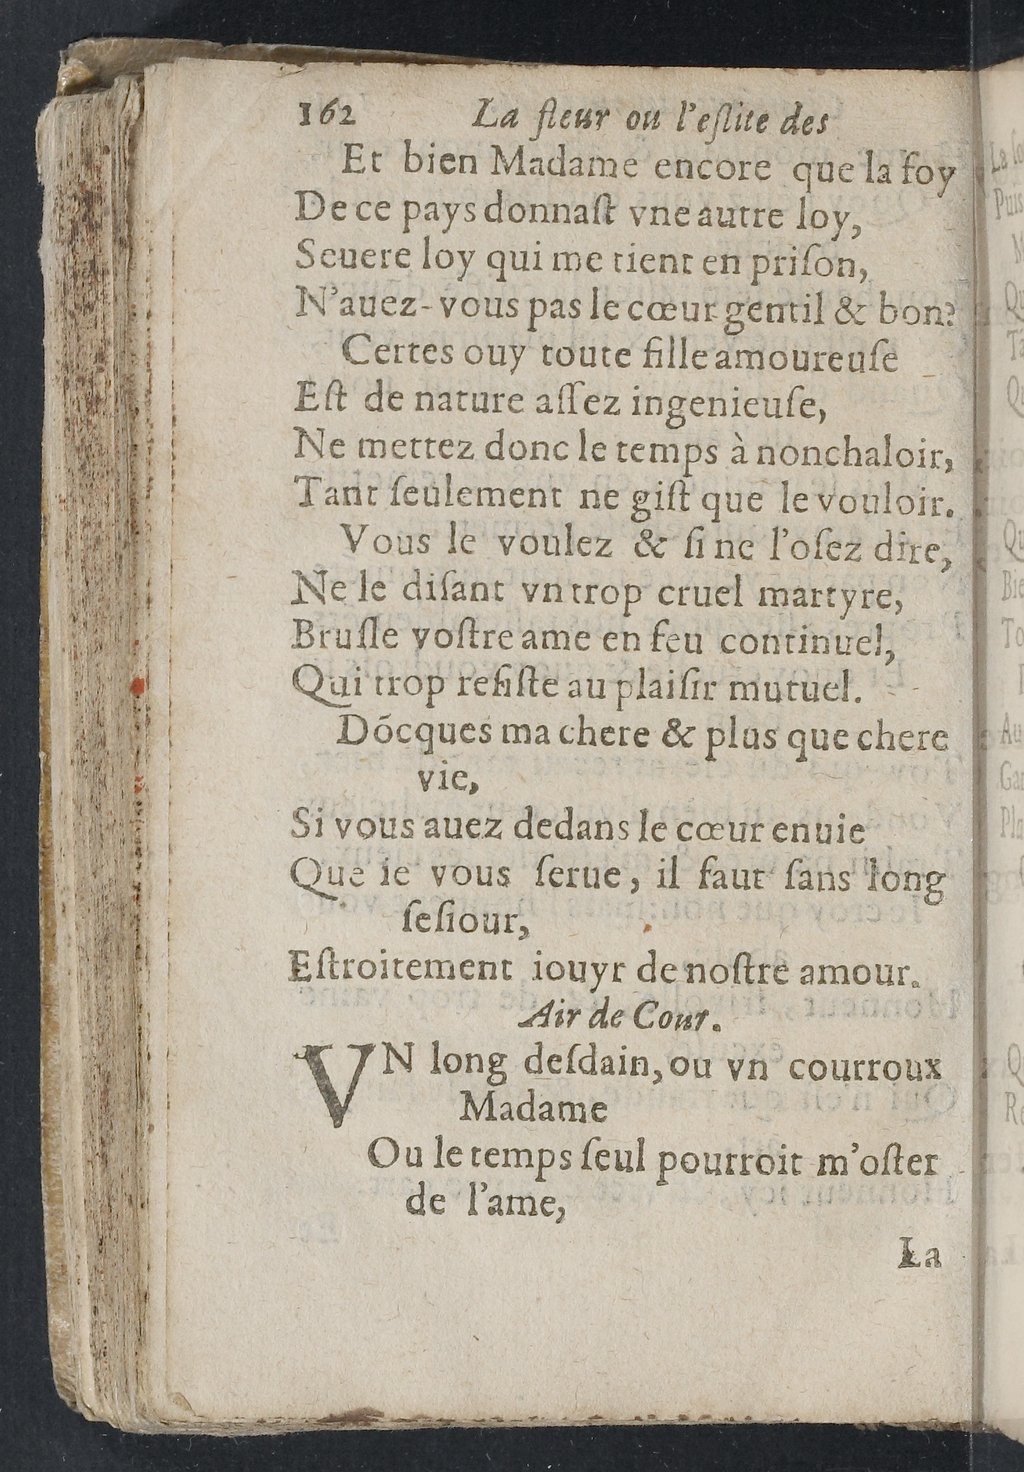 162 La fleur ou l'eſlite des
Et bien Madame encore que la foy
De ce pays donnaſt vne autre loy,
Seuere loy qui me tient en priſon,
N'auez-vous pas le cœur gentil & bon?
Certes ouy toute fille amoureuſe
Eſt de nature aſſez ingenieuſe,
Ne mettez donc le temps à nonchaloir,
Tant ſeulement ne giſt que le vouloir.
Vous le voulez & ſi ne l'oſez dire,
Ne le diſant vn trop cruel martyre,
Bruſle voſtre ame en feu continuel,
Qui trop reſiſte au plaiſir mutuel.
Dõcques ma chere & plus que chere
vie,
Si vous auez dedans le cœur enuie
Que ie vous ſerue, il faut ſans long
ſeſiour,
Eſtroitement iouyr de noſtre amour.
Air de Cour.
VN long deſdain, ou vn courroux
Madame
Ou le temps ſeul pourroit m'oſter
de l'ame,
La